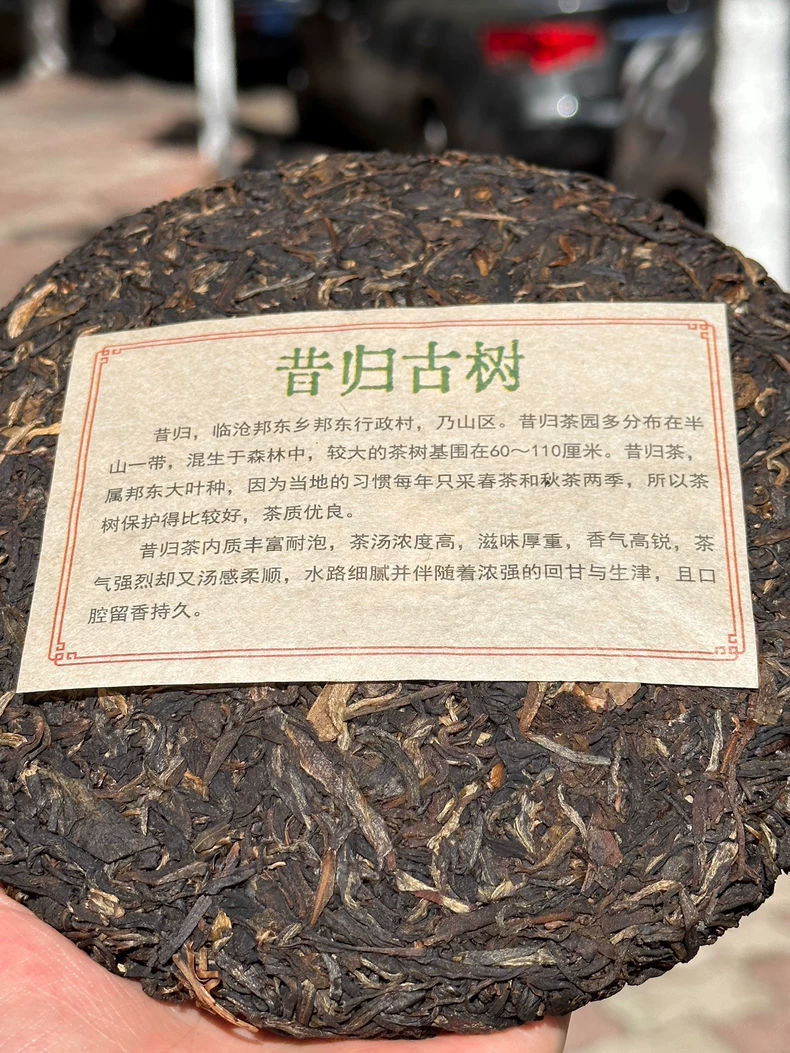 昔归古树
昔归，临沧邦东乡邦东行政村，乃山区。昔归茶园多分布在半
山一带，混生于森林中，较大的茶树基围在60～110厘米。昔归茶，
属邦东大叶种，因为当地的习惯每年只采春茶和秋茶两季，所以茶
树保护得比较好，茶质优良。
昔归茶内质丰富耐泡，茶汤浓度高，滋味厚重，香气高锐，茶
气强烈却又汤感柔顺，水路细腻并伴随着浓强的回甘与生津，且口
腔留香持久。